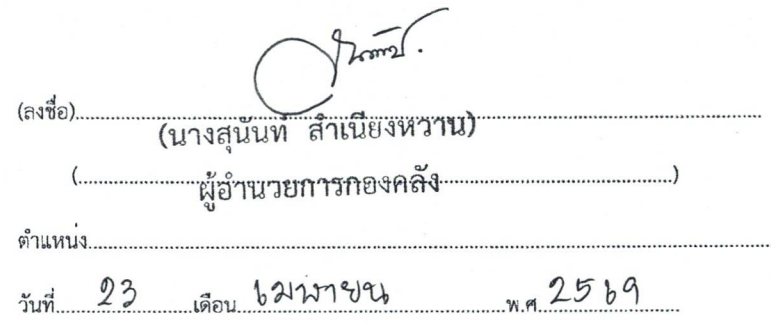 (ลงชื่อ)
(นางสุนันท์ สำเนียงหวาน)
(ผู้อำนวยการกองคลัง)
ตำแหน่ง
วันที่ 23 เดือน เมษายน พ.ศ. 2569